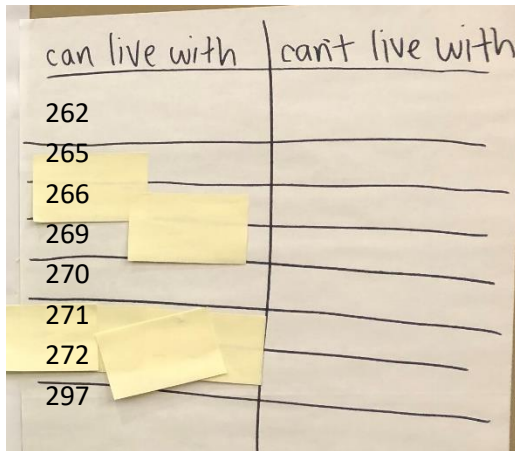 can live with can't live with
262
265
266
269
270
271
272
297